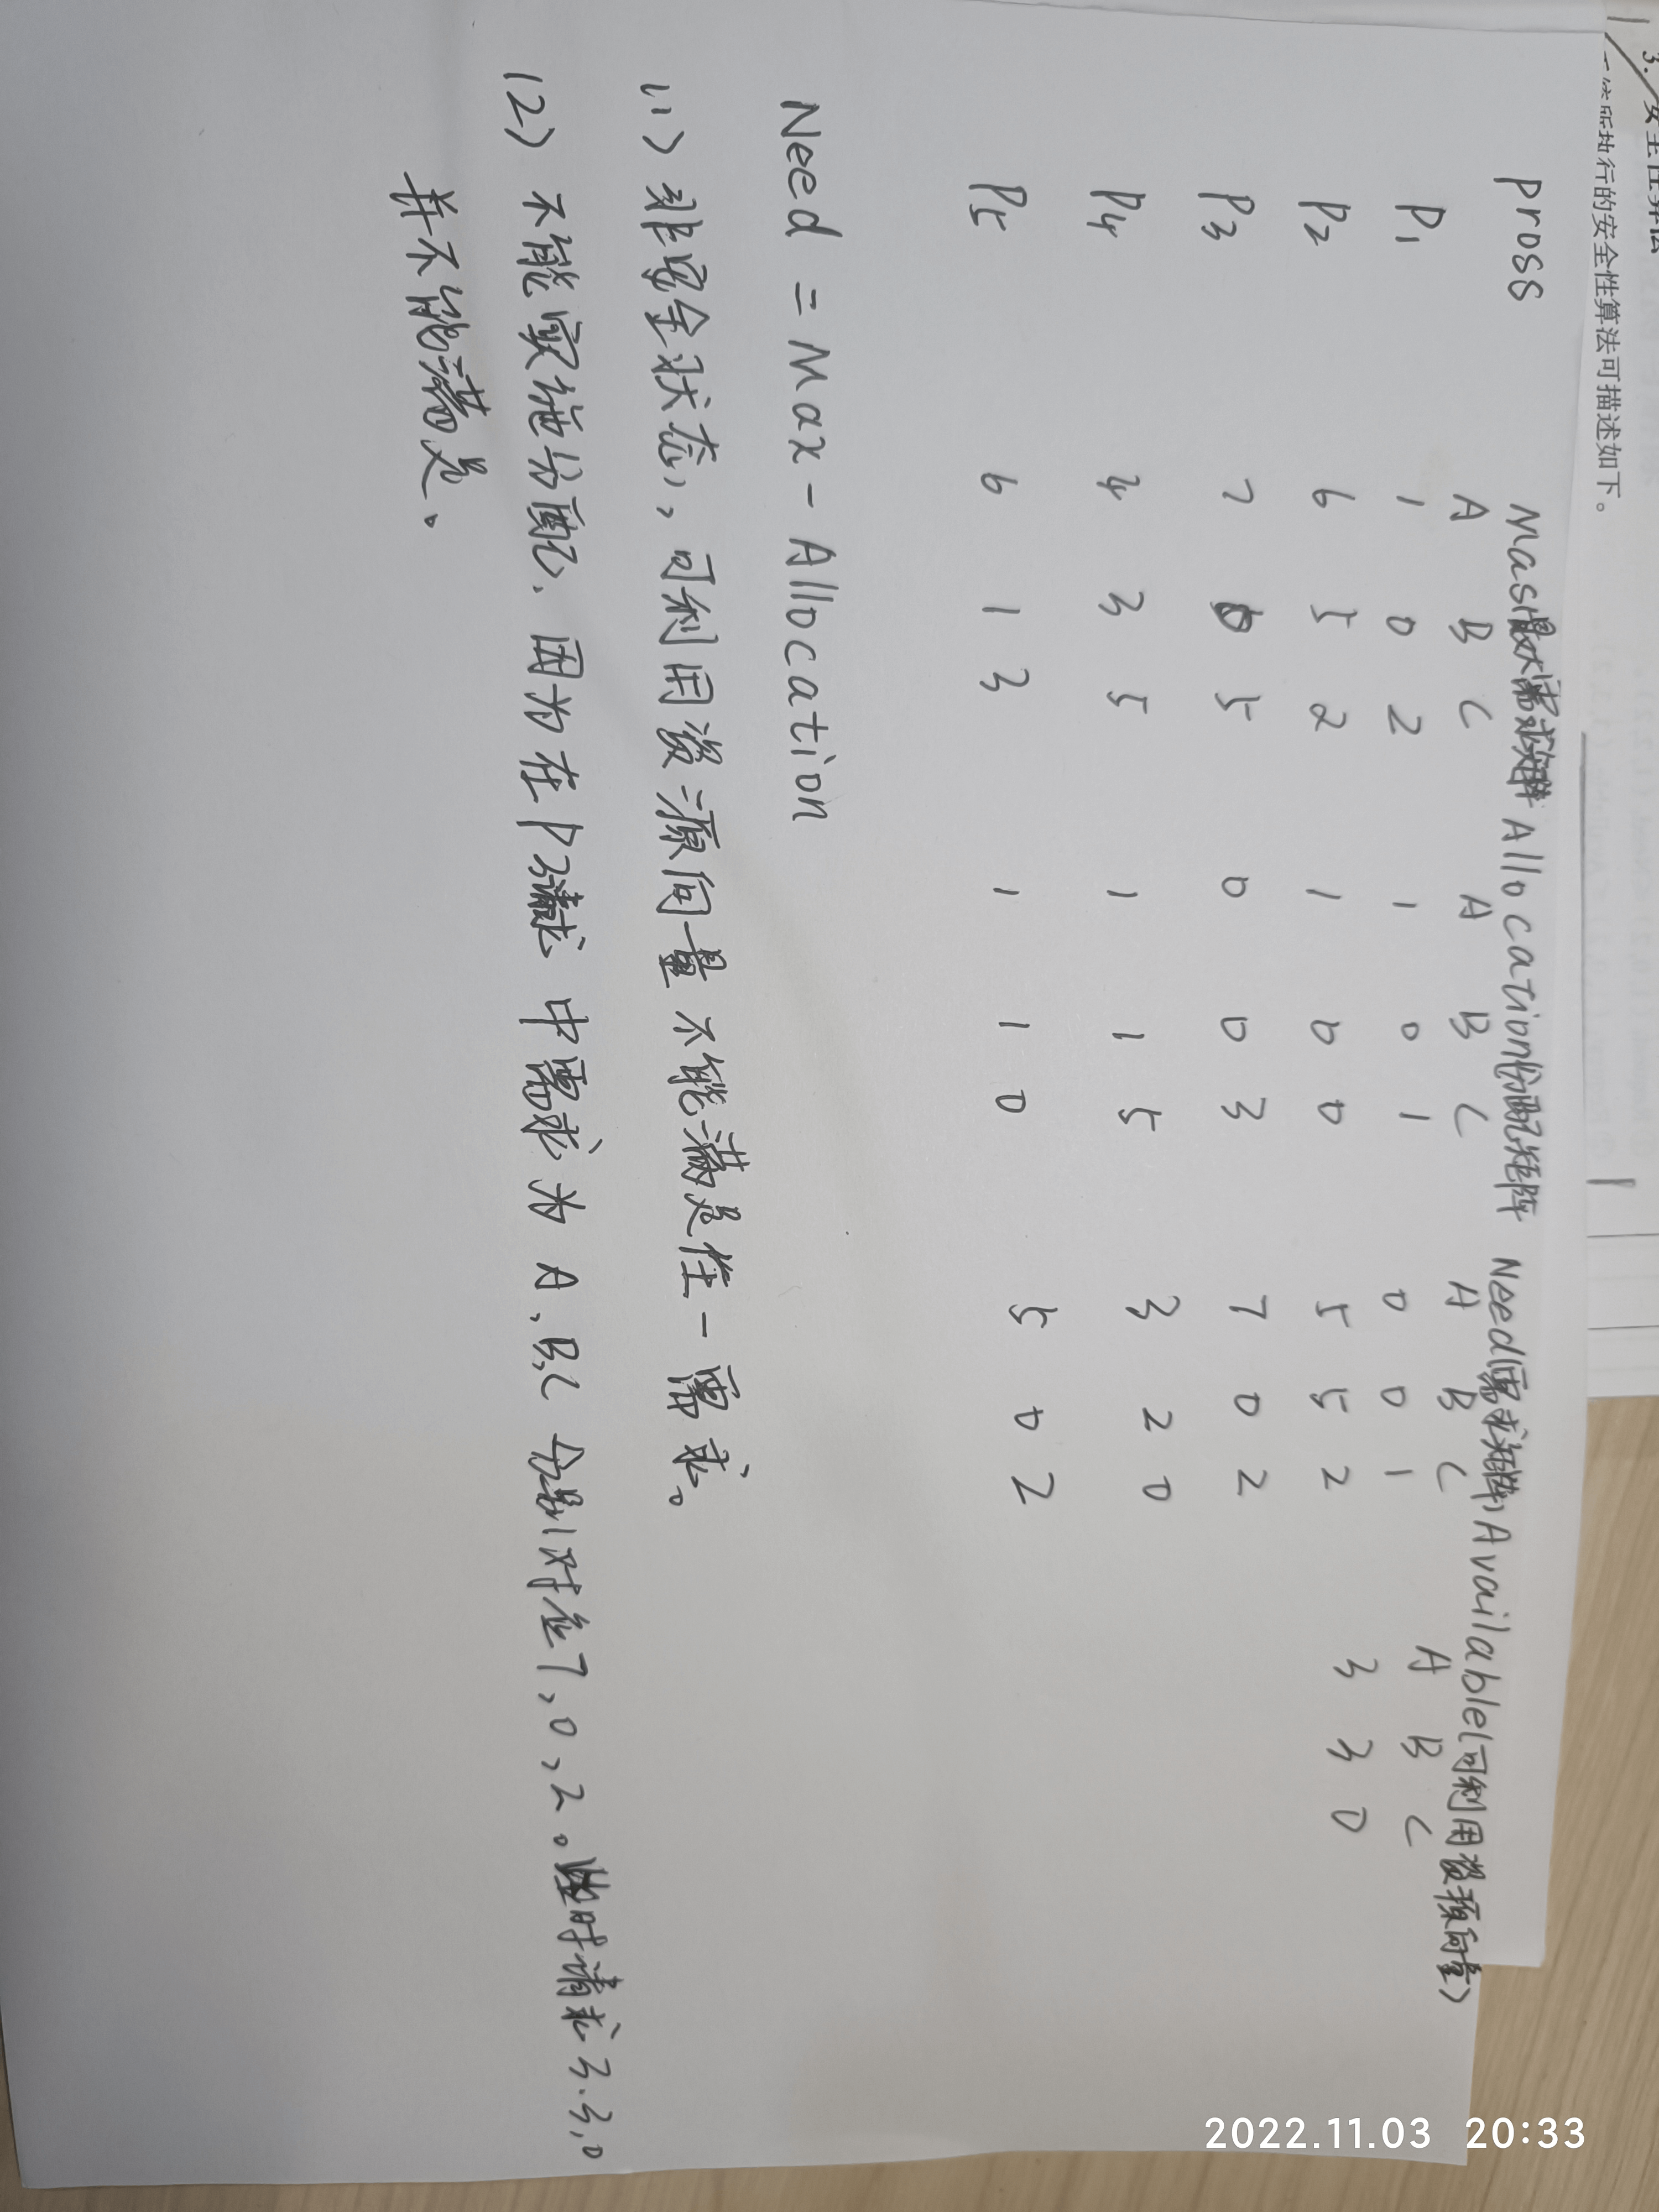 行的安全性算法可描述如下。
pross Mas Allocation分配矩阵 Need(需求矩阵) Available(可利用资源向量)
A B C A B C A B C A B C
P1 1 0 2 1 0 1 0 0 1
P2 6 5 2 1 0 0 5 5 2 3 3 0
P3 7 0 5 0 0 3 7 0 2
P4 4 3 5 1 1 5 3 2 0
P5 6 1 3 1 1 0 5 0 2
Need = Max - Allocation
(1) 非安全状态,可利用资源向量不能满足任一需求。
(2) 不能实施分配.因为在P3请求中需求为A,B,C分别对应7,0,2。此时请求3.3,0
并不能满足。
2022.11.03 20:33